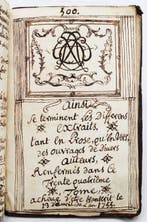 500.
Ainsi
Se terminent les Differens
Extraits,
tant en Prose, qu'en Vers,
des ouvrages de divers
auteurs,
Renfermés dans ce
Trente quatrième
Tome
achevé d'être transcrit le
1755